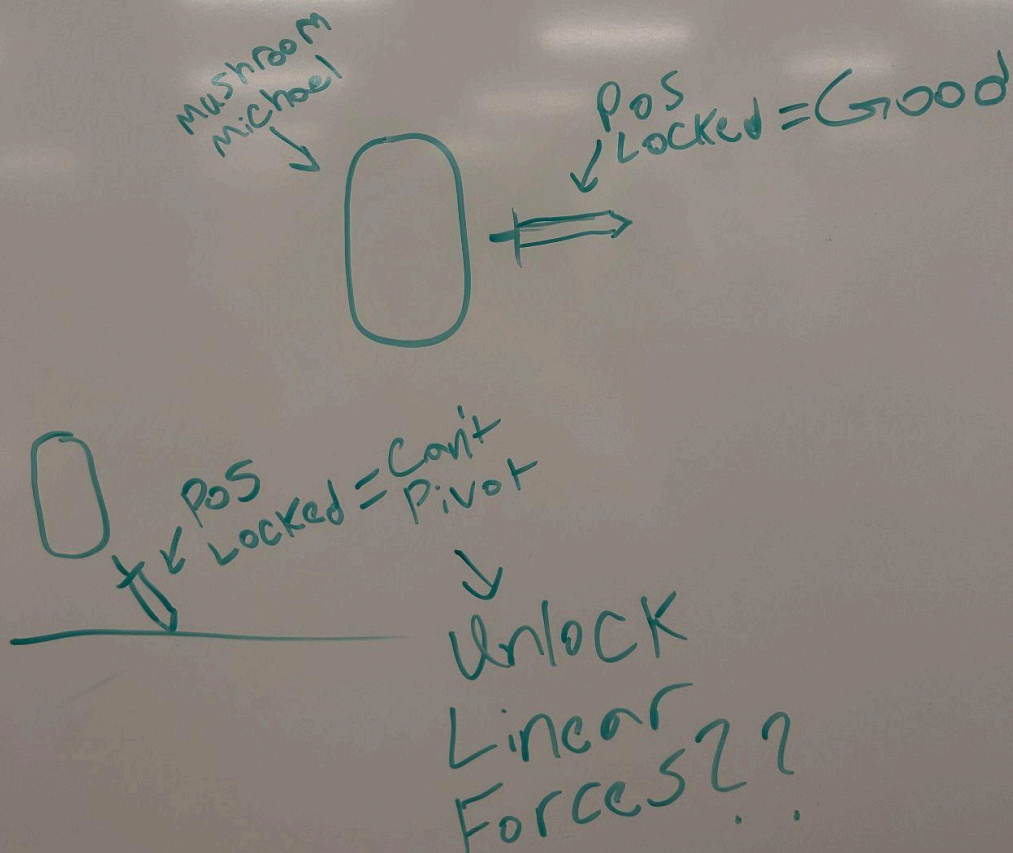 Mushroom
Michael
Pos
Locked = Good
Pos
Locked = Can't
Pivot
Unlock
Linear
Forces??